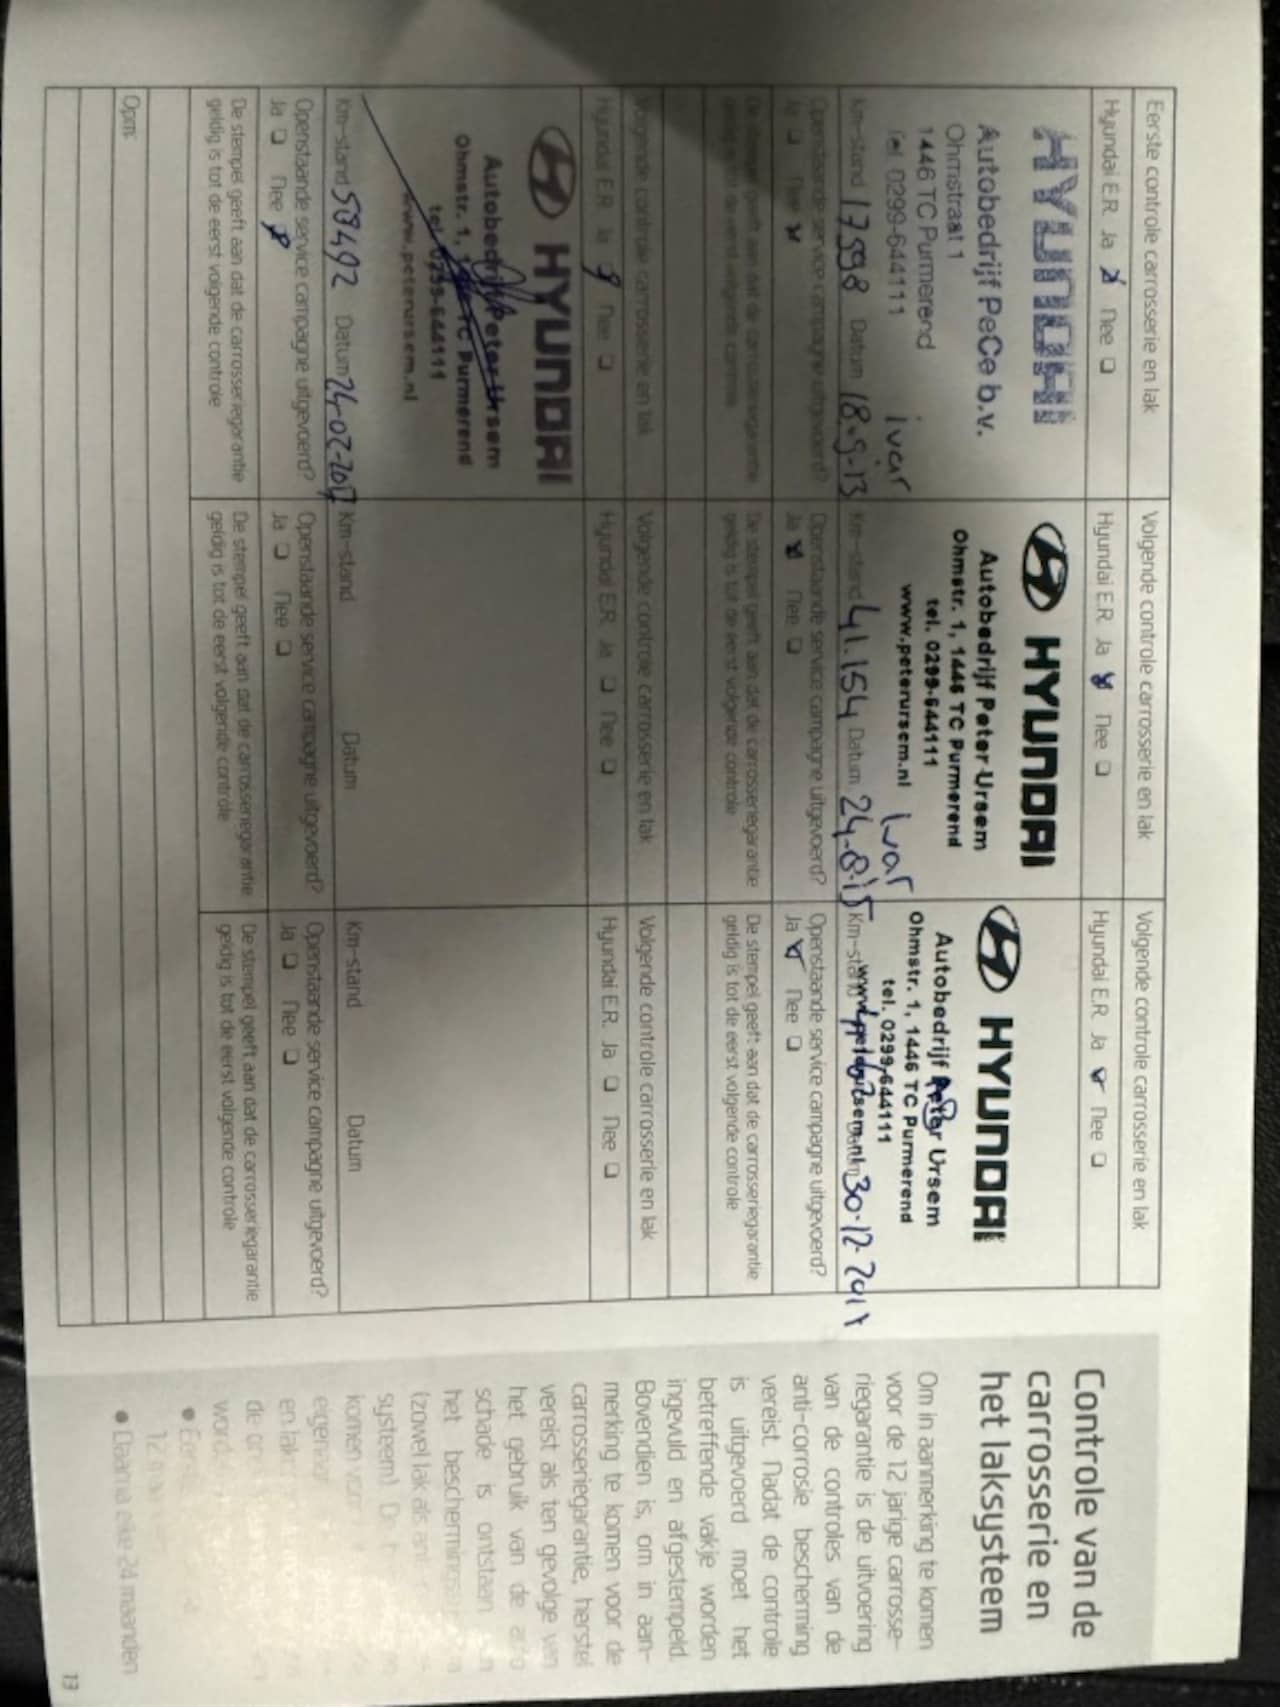 Eerste controle carrosserie en lak
Hyundai E.R. Ja Nee
HYUNDAI
Autobedrijf PeCe b.v.
Ohmstraat 1
1446 TC Purmerend
Tel 0299-644111 ivar
Km-stand 17598 Datum 18-9-13
Openstaande service campagne uitgevoerd?
Ja Nee
De stempel geeft aan dat de carrosseriegarantie
geldig is tot de eerst volgende controle
Volgende controle carrosserie en lak
Hyundai E.R. Ja Nee
HYUNDAI
Autobedrijf Peter Ursem
Ohmstr. 1, 1446 TC Purmerend
tel. 0299-644111
www.peterursem.nl
Ivar
Km-stand 41.154 Datum 24-8-15
Openstaande service campagne uitgevoerd?
Ja Nee
De stempel geeft aan dat de carrosseriegarantie
geldig is tot de eerst volgende controle
Volgende controle carrosserie en lak
Hyundai E.R. Ja Nee
HYUNDAI
Autobedrijf Peter Ursem
Ohmstr. 1, 1446 TC Purmerend
tel. 0299-644111
Km-stand Datum 30-12-
Openstaande service campagne uitgevoerd?
Ja Nee
De stempel geeft aan dat de carrosseriegarantie
geldig is tot de eerst volgende controle
Volgende controle carrosserie en lak
Hyundai E.R. Ja Nee
HYUNDAI
Autobedrijf Peter Ursem
Ohmstr. 1, 1446 TC Purmerend
tel. 0299-644111
www.peterursem.nl
Km-stand 58492 Datum 24-02-2017
Openstaande service campagne uitgevoerd?
Ja Nee
De stempel geeft aan dat de carrosseriegarantie
geldig is tot de eerst volgende controle
Volgende controle carrosserie en lak
Hyundai E.R. Ja Nee
Km-stand Datum
Openstaande service campagne uitgevoerd?
Ja Nee
De stempel geeft aan dat de carrosseriegarantie
geldig is tot de eerst volgende controle
Volgende controle carrosserie en lak
Hyundai E.R. Ja Nee
Km-stand Datum
Openstaande service campagne uitgevoerd?
Ja Nee
De stempel geeft aan dat de carrosseriegarantie
geldig is tot de eerst volgende controle
Opm:
Controle van de
carrosserie en
het laksysteem
Om in aanmerking te komen
voor de 12 jarige carrosse-
riegarantie is de uitvoering
van de controles van de
anti-corrosie bescherming
vereist. Nadat de controle
is uitgevoerd moet het
betreffende vakje worden
ingevuld en afgestempeld.
Bovendien is, om in aan-
merking te komen voor de
carrosseriegarantie, herstel
vereist als ten gevolge van
het gebruik van de auto
schade is ontstaan
het beschermings
(zowel lak als
systeem).
komen
eigenaar
en lak
de
● Daarna elke 24 maanden
13